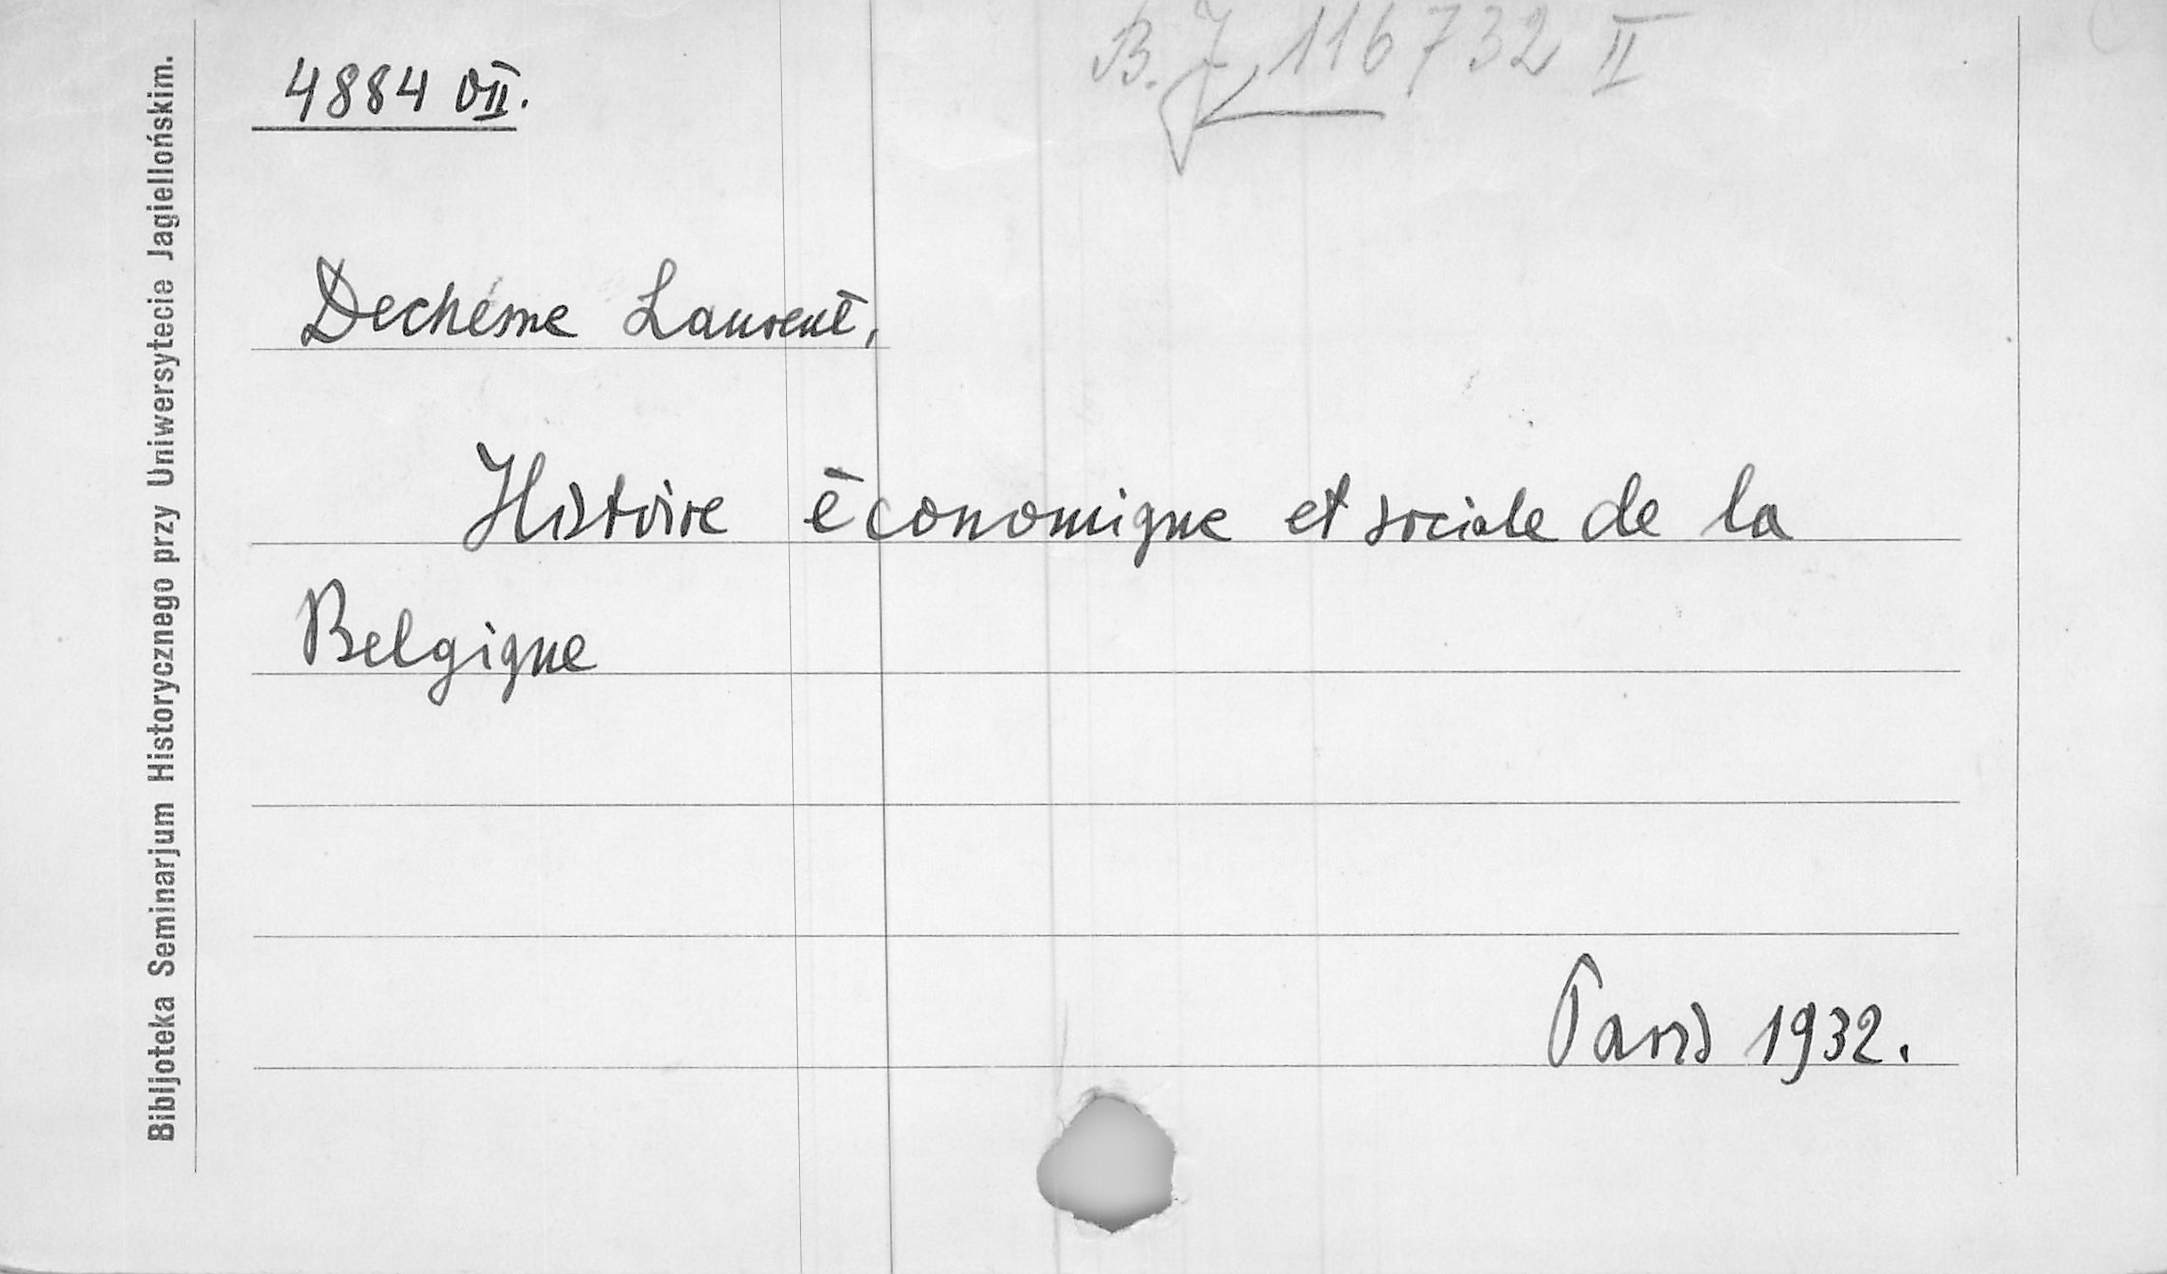 B. J. 116732 II
4884 VII.
Dechesne Laurent,
Histoire économique et sociale de la
Belgique
Paris 1932.
Bibljoteka Seminarjum Historycznego przy Uniwersytecie Jagiellońskim.